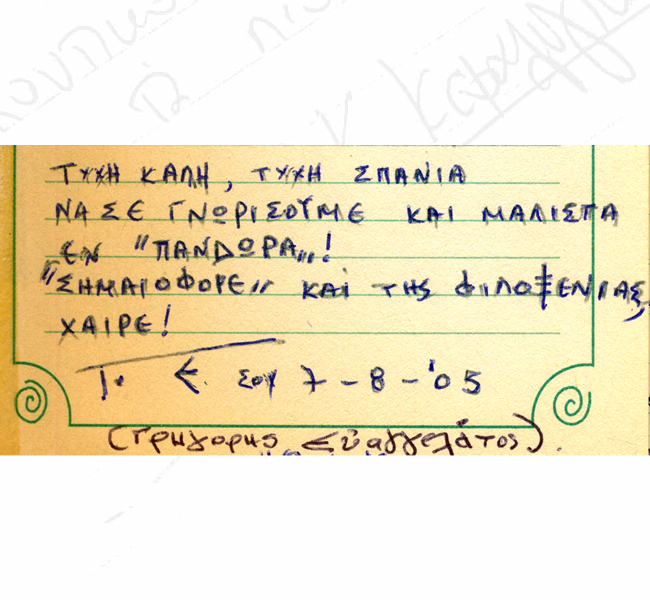 ΤΥΧΗ ΚΑΛΗ, ΤΥΧΗ ΣΠΑΝΙΑ
ΝΑ ΣΕ ΓΝΩΡΙΣΟΥΜΕ ΚΑΙ ΜΑΛΙΣΤΑ
ΕΝ "ΠΑΝΔΩΡΑ„!
"ΣΗΜΑΙΟΦΟΡΕ„ ΚΑΙ ΤΗΣ ΦΙΛΟΞΕΝΙΑΣ,
ΧΑΙΡΕ!
Γ. Ε. Σου 7-8-'05
(Γρηγορης Ευαγγελάτος).